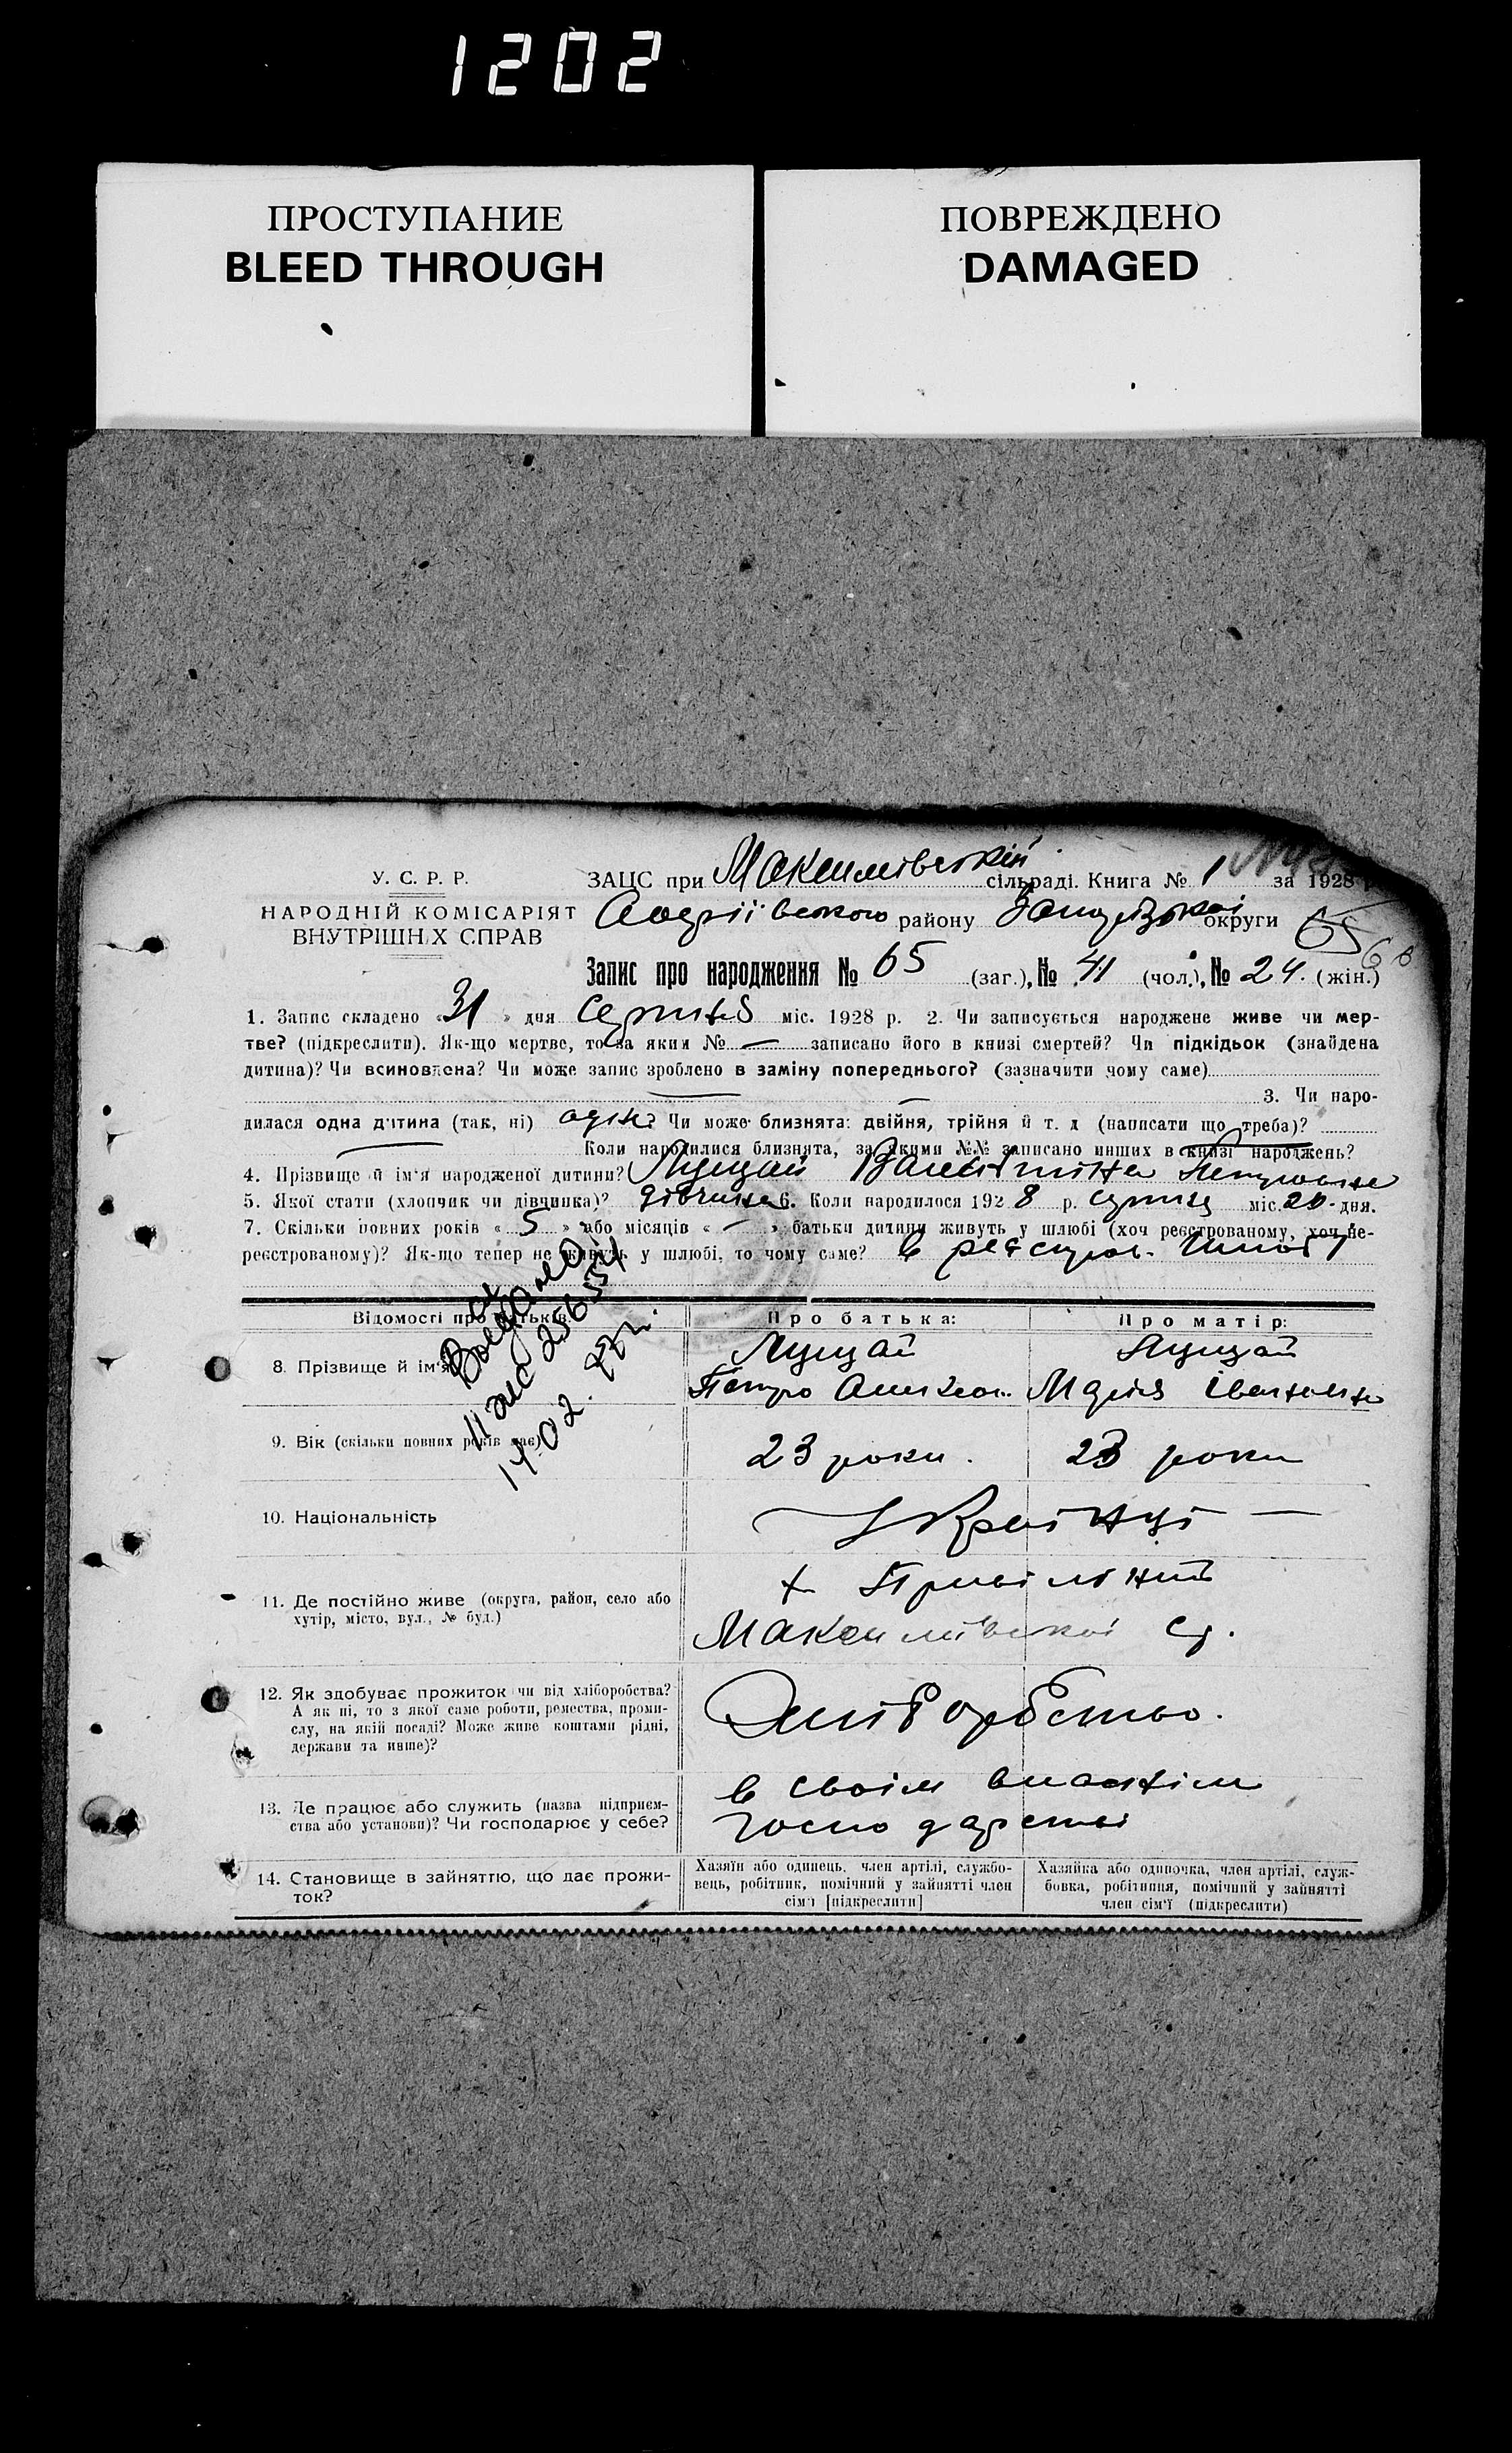 1202
ПРОСТУПАНИЕ
BLEED THROUGH
ПОВРЕЖДЕНО
DAMAGED
У. С. Р. Р.
НАРОДНІЙ КОМІСАРІЯТ
ВНУТРІШНІХ СПРАВ
ЗАЦС при Максимівській сільраді. Книга № 1 за 1928 р
району округи 65
Запис про народження № 65 (заг.), № 41 (чол.), № 24. (жін.)
1. Запис складено «31» дня Серпня міс. 1928 р. 2. Чи записується народжене живе чи мер-
тве? (підкреслити). Як-що мертве, то за яким № — записано його в книзі смертей? Чи підкідьок (знайдена
дитина)? Чи всиновлена? Чи може запис зроблено в заміну попереднього? (зазначити чому саме)
3. Чи наро-
дилася одна дитина (так, ні) одна Чи може близнята: двійня, трійня й т. д (написати що треба)?
Коли народилися близнята, за якими №№ записано инших в книзі народжень?
4. Прізвище й ім'я народженої дитини? Луцай Валентина Петровна
5. Якої стати (хлопчик чи дівчинка)? дівчина 6. Коли народилося 1928 р. серпня міс. 20-дня.
7. Скільки повних років «5» або місяців «—» батьки дитини живуть у шлюбі (хоч реєстрованому, хоч не-
реєстрованому)? Як-що тепер не живуть у шлюбі, то чому саме? в реєстров. шлюбі
Відомості про батьків.
Про батька:
Про матір:
8. Прізвище й ім'я
Луцай
Луцай
Петро
Марія Івановна
9. Вік (скільки повних років має)
23 роки.
23 роки
14.02.
10. Національність
Українці
11. Де постійно живе (округа, район, село або
хутір, місто, вул., № буд.)
х
Максимівської с/р.
12. Як здобуває прожиток чи від хліборобства?
А як ні, то з якої саме роботи, ремества, проми-
слу, на якій посаді? Може живе коштами рідні,
держави та инше)?
Хліборобство.
13. Де працює або служить (назва підприєм-
ства або установи)? Чи господарює у себе?
в своїм власнім
господарстві
14. Становище в зайняттю, що дає прожи-
ток?
Хазяїн або одинець, член артілі, службо-
вець, робітник, помічний у зайнятті член
сім'ї [підкреслити]
Хазяйка або одиночка, член артілі, служ-
бовка, робітниця, помічний у зайнятті
член сім'ї (підкреслити)